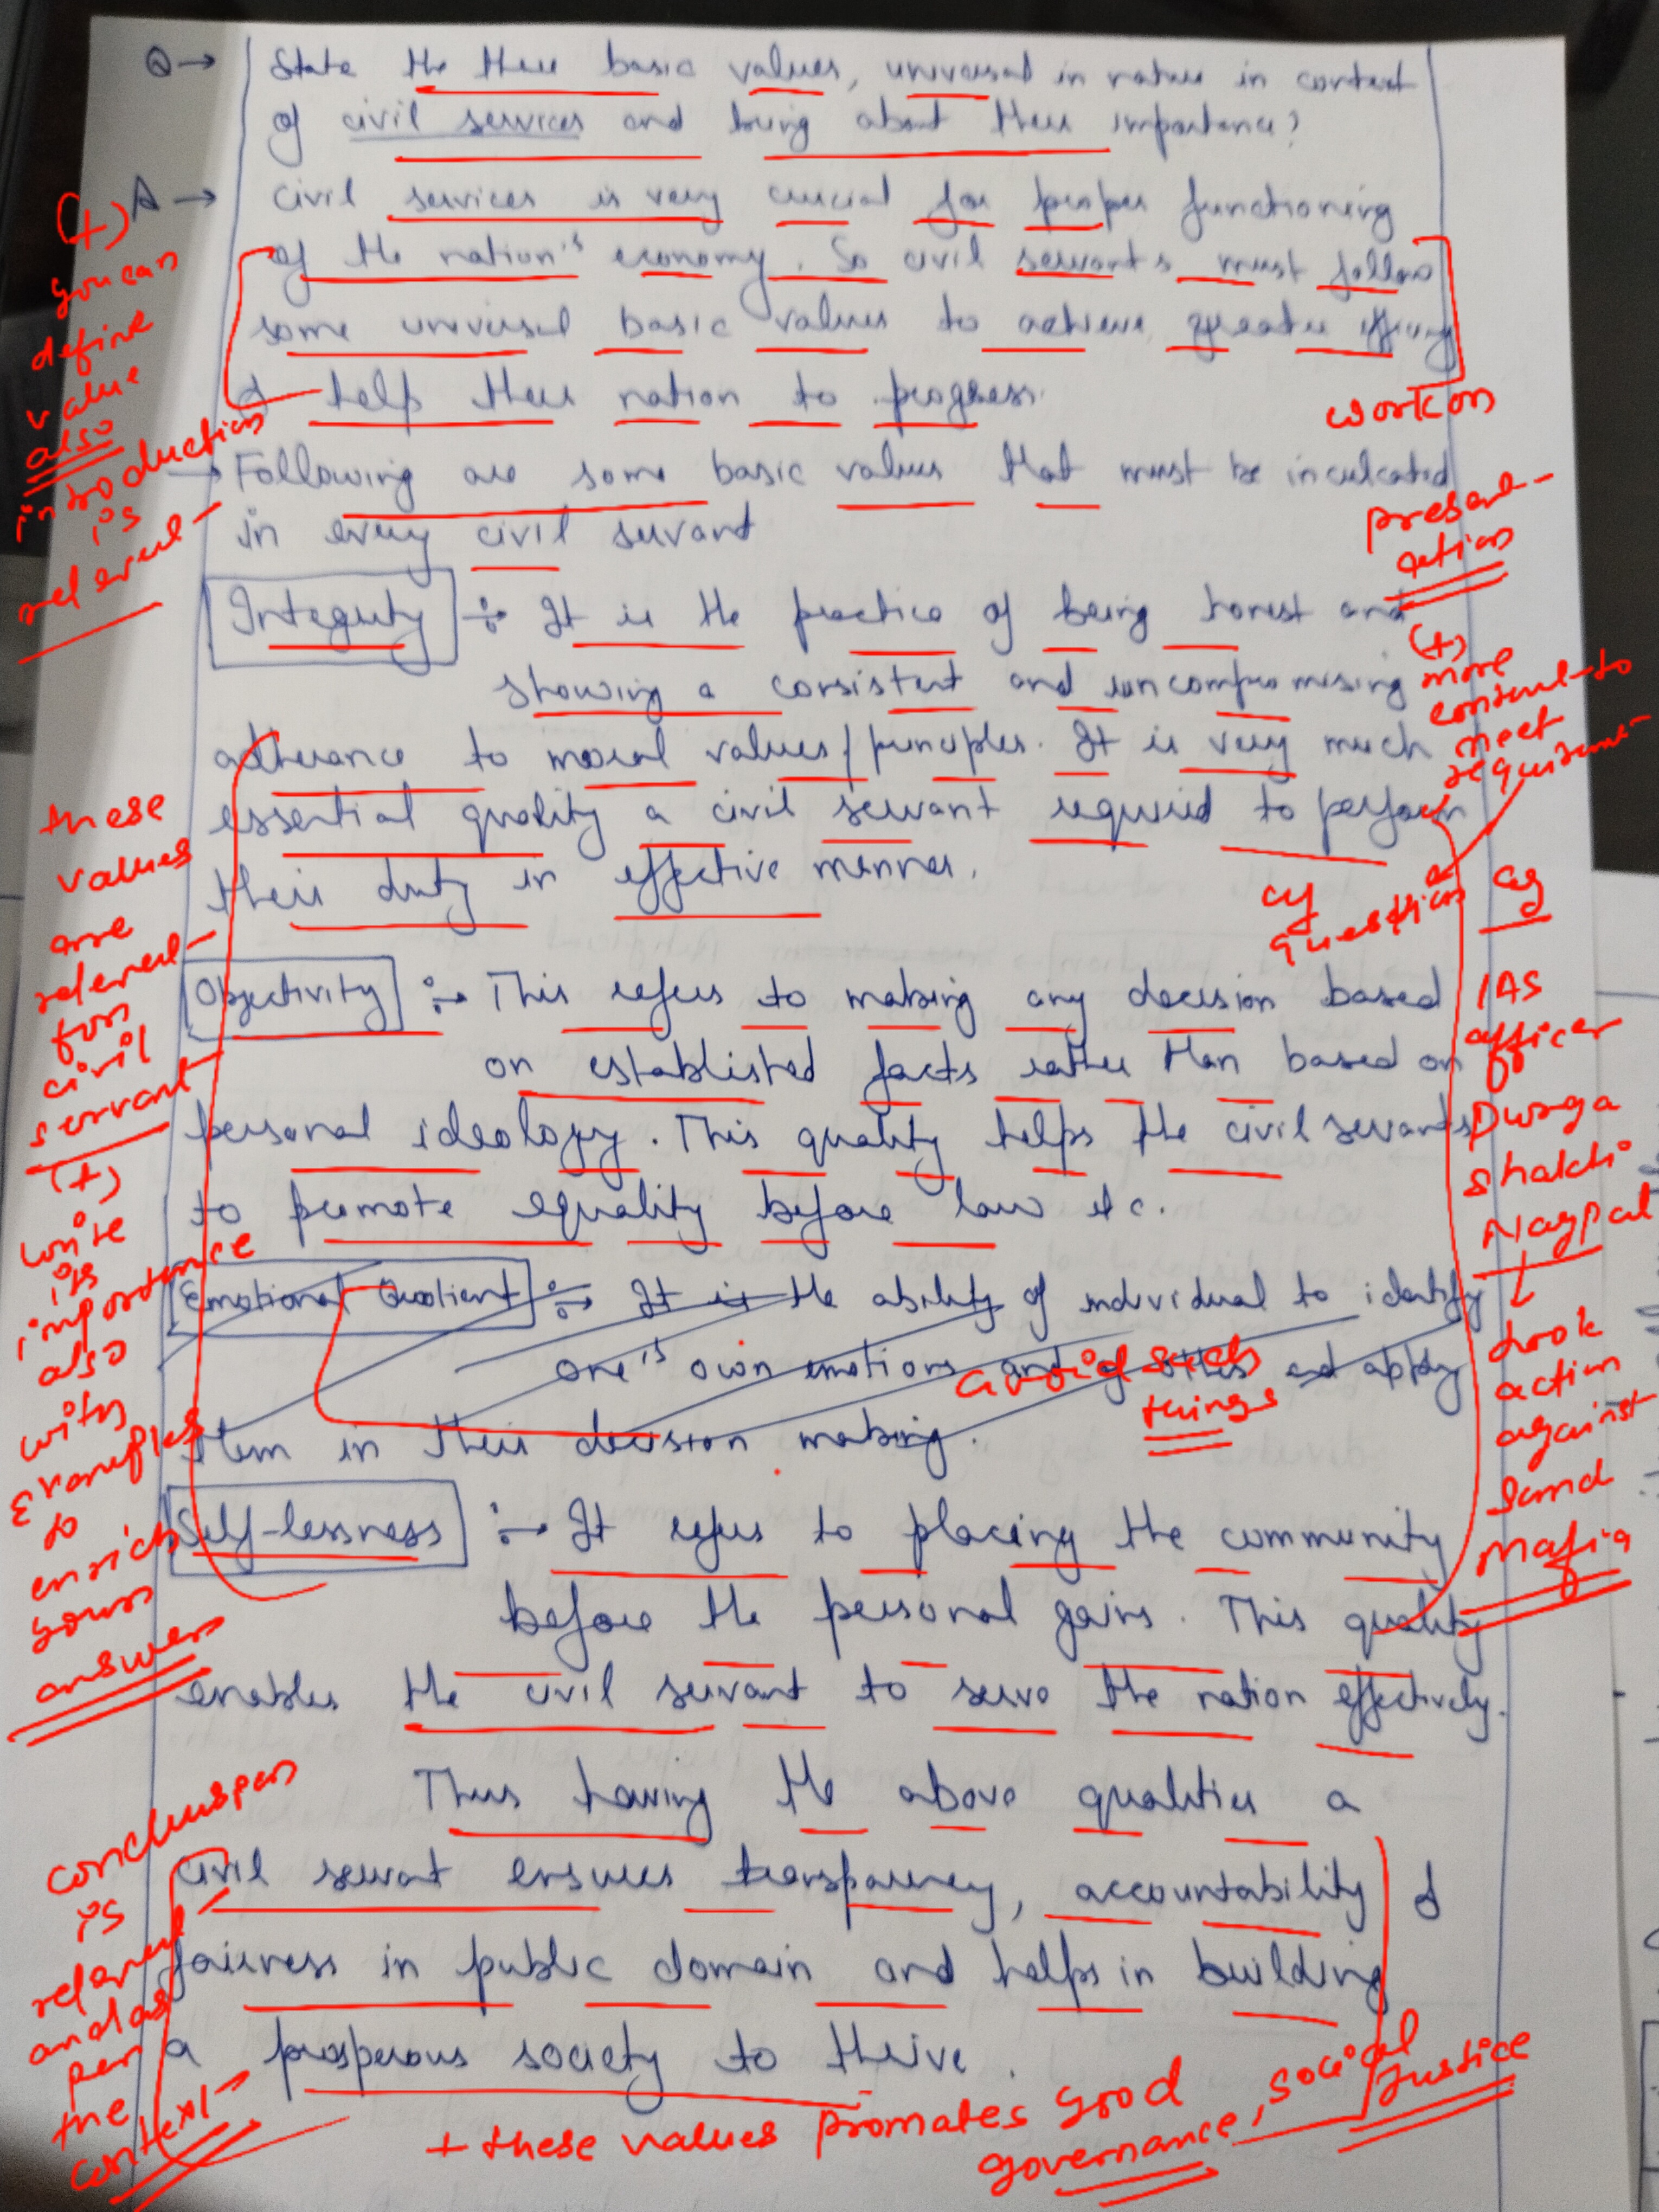 Q → State the three basic values, universal in nature in context
of civil services and bring about their importance?
A → Civil services is very crucial for proper functioning
of the nation's economy. So civil servants must follow
some universal basic values to achieve greater
& help their nation to progress.
→ Following are some basic values that must be inculcated
in every civil servant
Integrity :- It is the practice of being honest and
showing a consistent and uncompromising
adherance to moral values/principles. It is very much
essential quality a civil servant required to perform
their duty in effective manner.
Objectivity :→ This refers to making any decision based
on established facts rather than based on
personal ideology. This quality helps the civil servants
to promote equality before law etc.
Emotional Quotient :→ It is the ability of individual to identify
one's own emotions and of others and apply
them in their decision making.
Self-lessness :→ It refers to placing the community
before the personal gains. This quality
enables the civil servant to serve the nation effectively.
Thus having the above qualities a
civil servant ensures transparency, accountability &
fairness in public domain and helps in building
a prosperous society to thrive.
(+)
you can
define
value
also
introduction
is
relevent
these
values
are
relevent
for
civil
servant
(+)
write
its
importance
also
with
examples
to
enrich
your
answer
conclusion
is
relevent
and as
per
the
context
work on
present-
ation
(+)
more
content to
meet
requirement
of
question
eg
IAS
officer
Durga
Shakti
Nagpal
↓
took
action
against
Sand
Mafia
avoid such
things
+ these values promotes good
governance, social
Justice